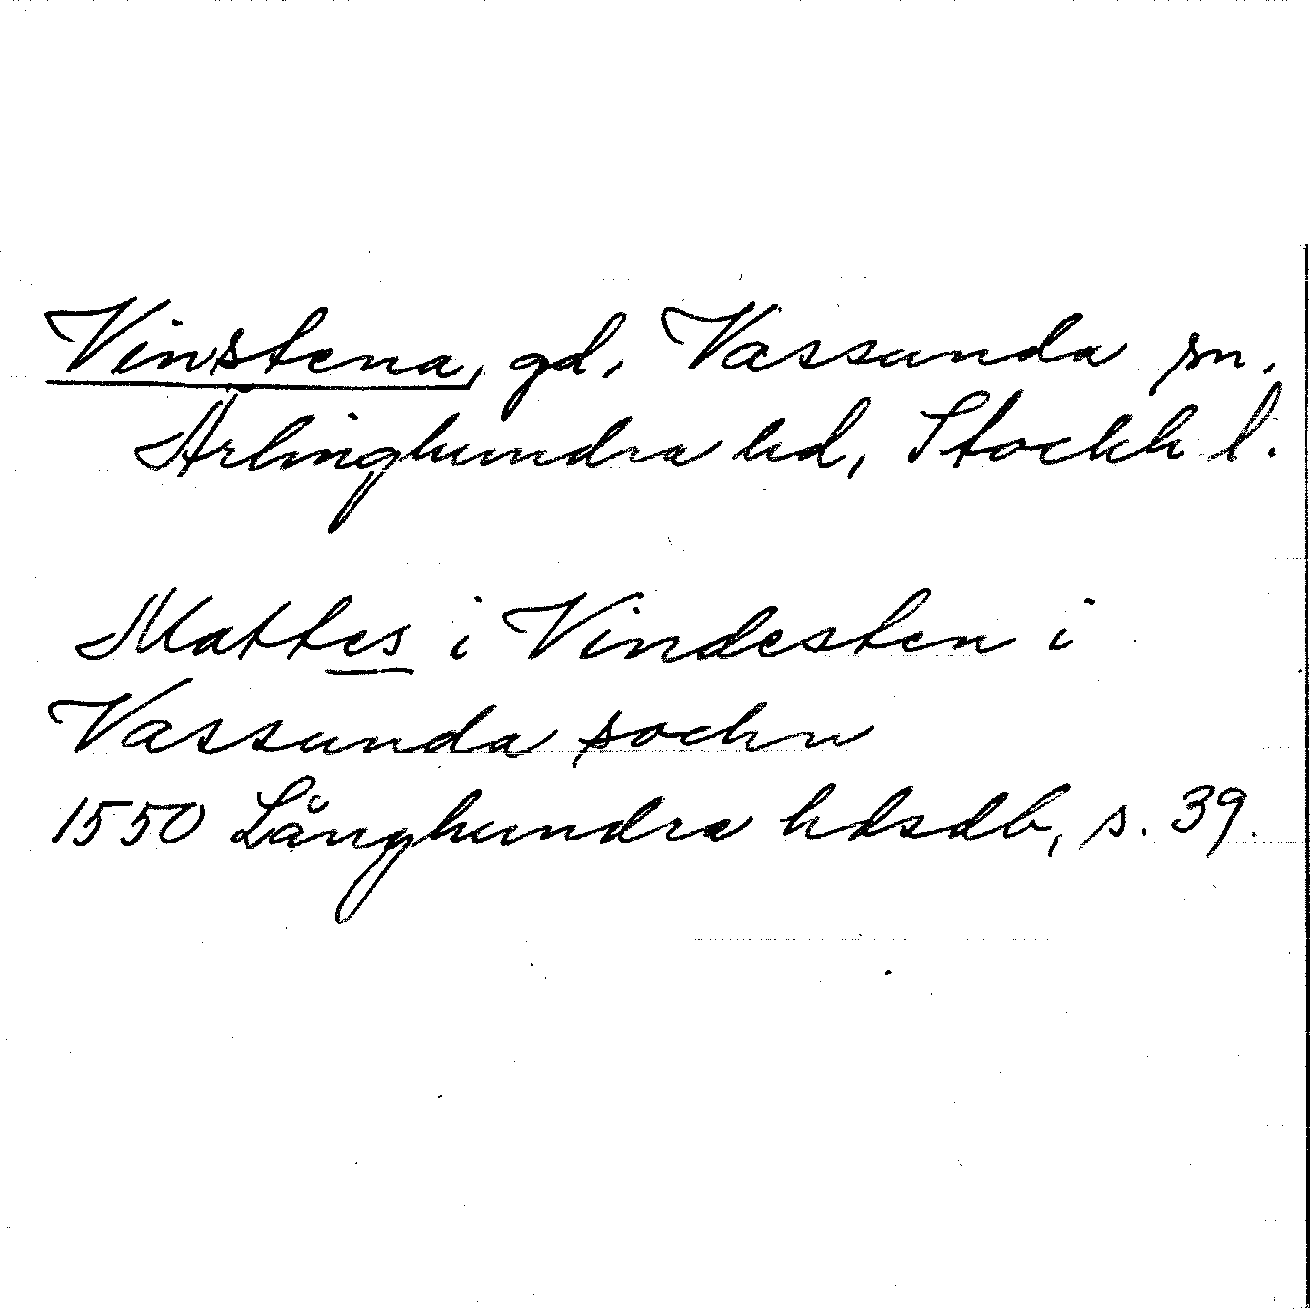 Vinstena, gd, Vassunda sn.
Ärlinghundra hd, Stockh l.
Mattes i Vindesten i
Vassunda sochn
1550 Långhundra hdsdb, s. 39.